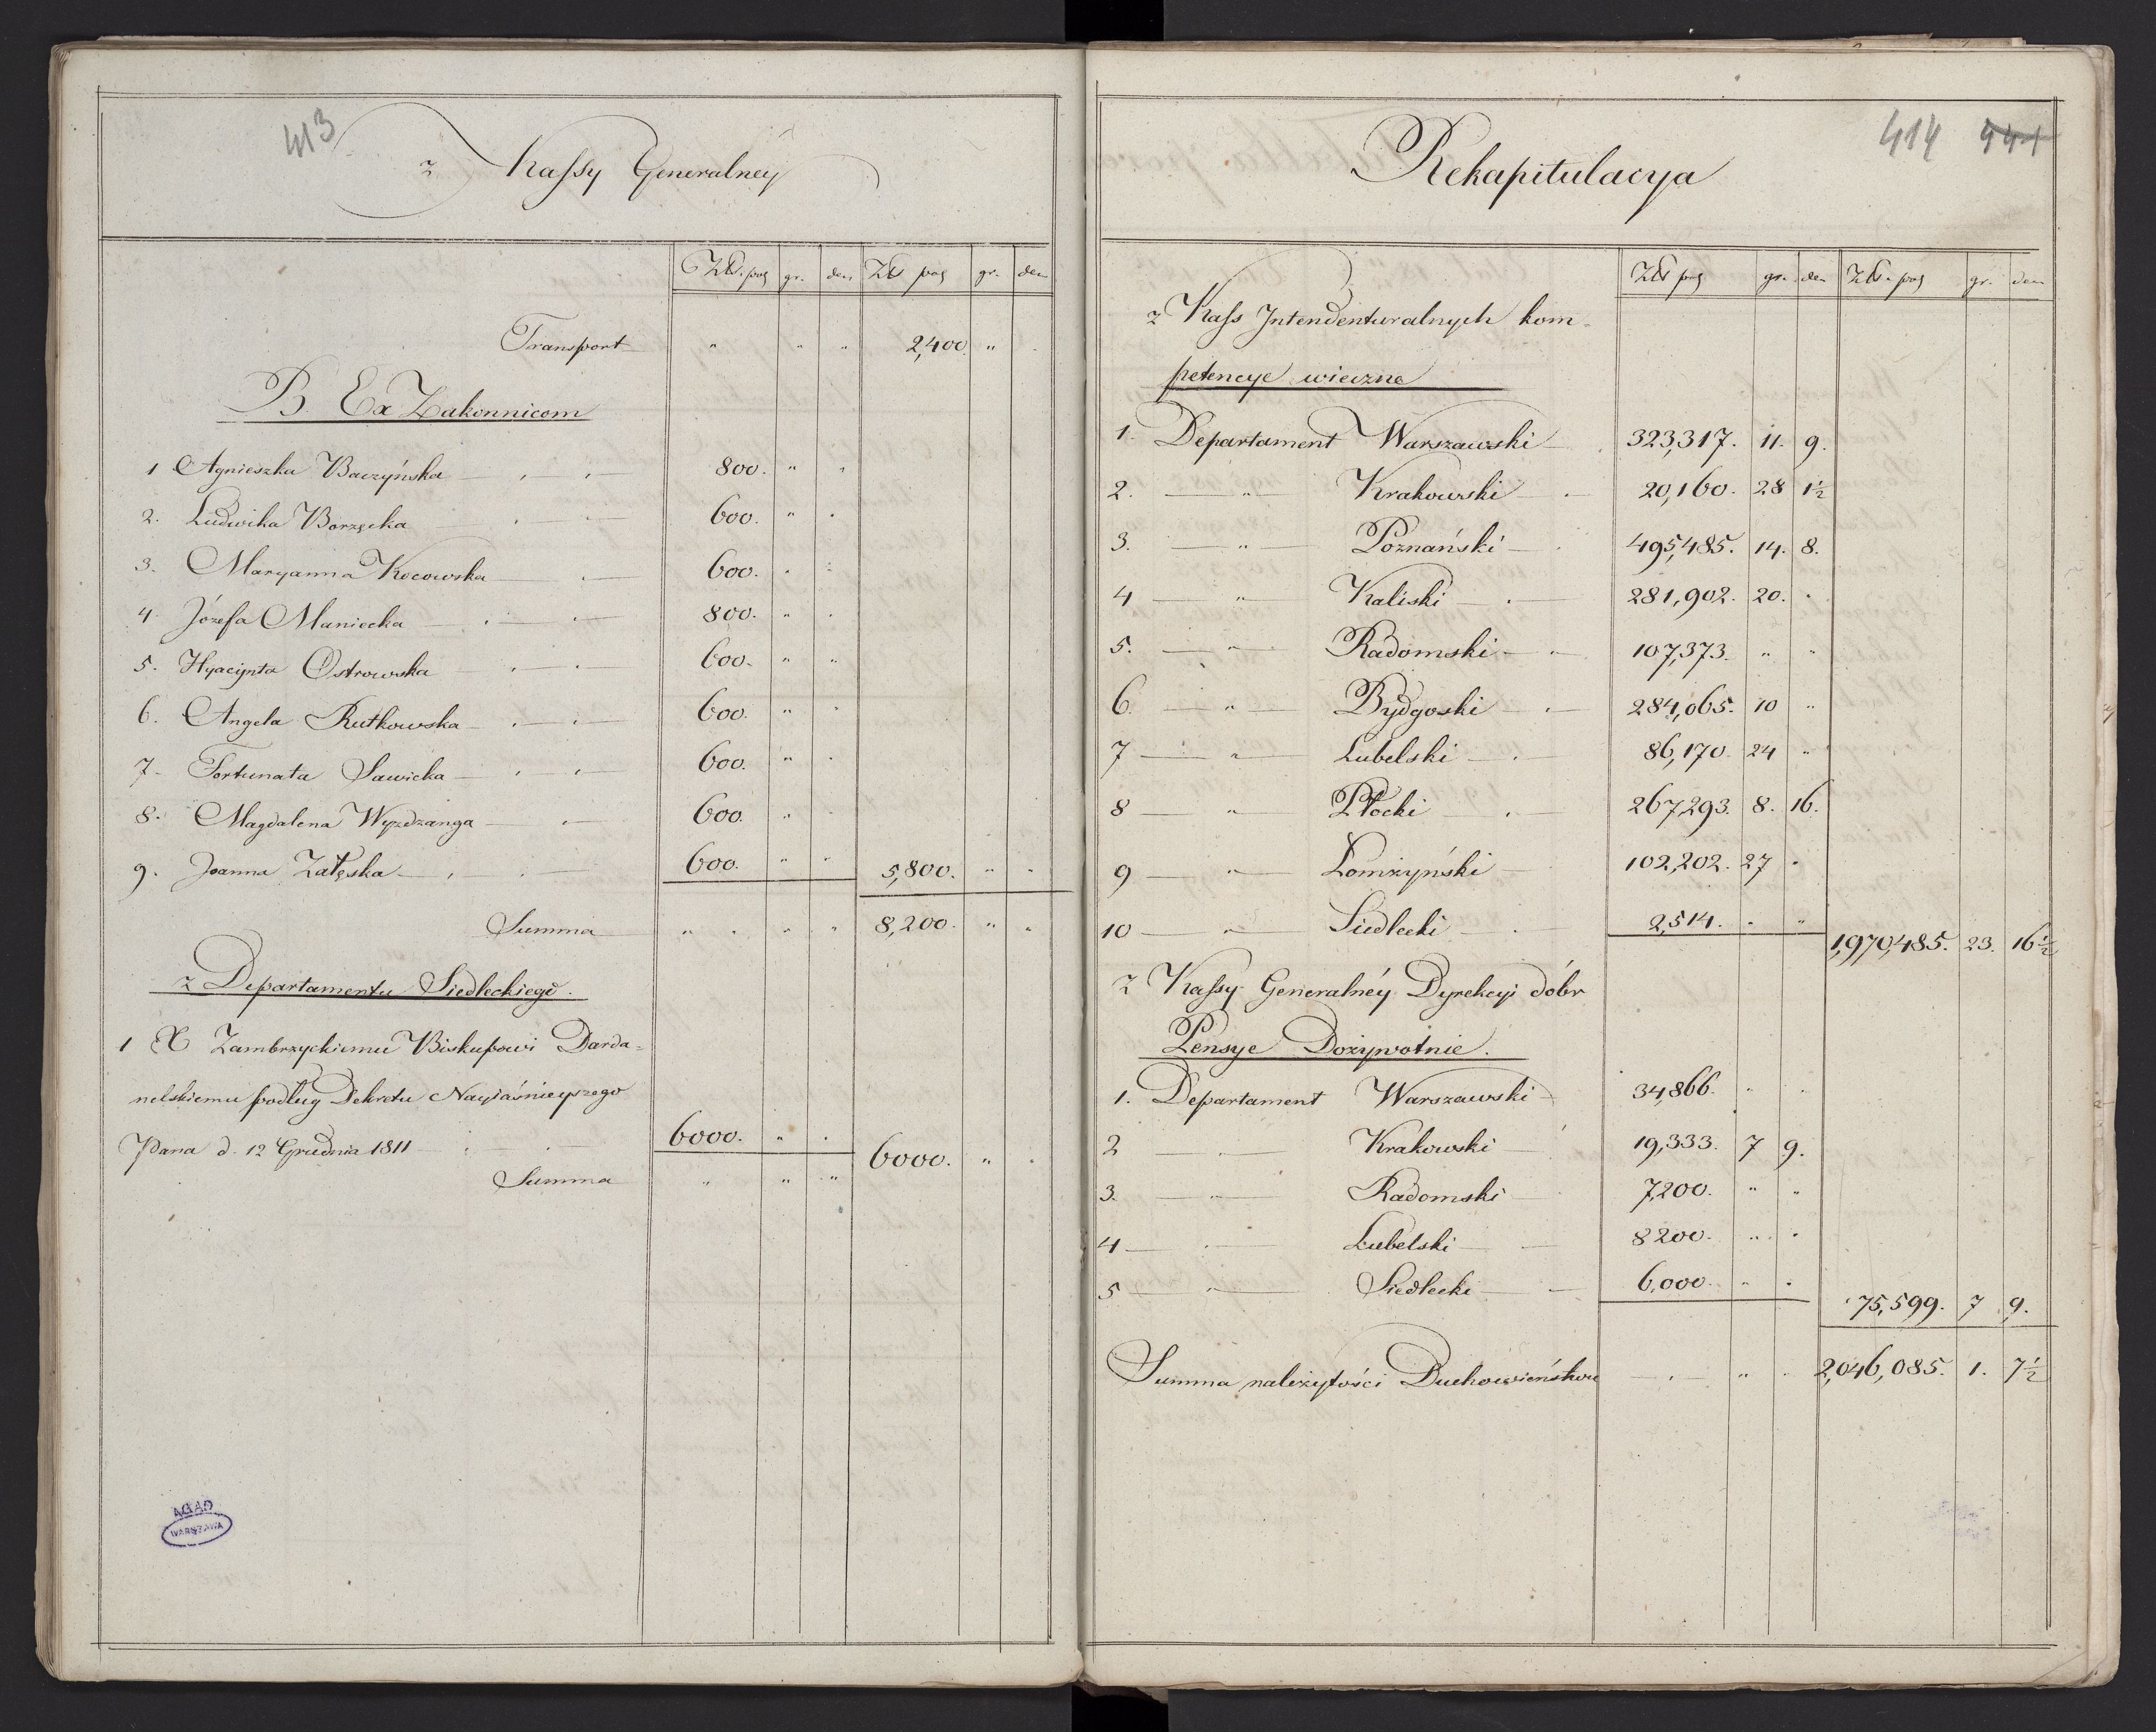 413
z Kassy Generalney
Złt. pol gr. den Złt pol gr. den
Transport " " " 2,400. "
B. Ex Zakonnicom
1 Agnieszka Baczyńska 800. " "
2. Ludwika Borzęcka 600. " "
3. Maryanna Kocowska 600. " "
4. Józefa Maniecka 800. " "
5. Hyacynta Ostrowska 600. " "
6. Angela Rutkowska 600. " "
7. Fortunata Sawicka 600. " "
8. Magdalena Wyzdzanga 600. " "
9. Joanna Załęska 600. " " 5,800. " "
Summa " " " " 8,200. " "
z Departamentu Siedleckiego.
1 X Zambrzyckiemu Biskupowi Darda=
nelskiemu podług Dekretu Nayiaśnieyszego
Pana d. 12 Grudnia 1811 6000. " " 6000. " "
Summa " " "
AGAD
WARSZAWA
414 441
Rekapitulacya
Złt pol gr. den Złt. pol gr. den
z Kass Jntendenturalnych kom=
petencye wieczne
1. Departament Warszawski 323,317. 11. 9.
2. " Krakowski 20,160. 28 1½
3. " Poznański 495,485. 14. 8.
4 " Kaliski 281,902. 20. "
5. " Radomski 107,373. " "
6. " Bydgoski 284,065. 10 "
7 " Lubelski 86,170. 24 "
8 " Płocki 267,293. 8. 16.
9 " Łomżyński 102,202. 27 "
10 " Siedlecki 2,514. " " 1,970,485. 23. 16½
z Kassy Generalnéy Dyrekcyi dóbr
Pensye Dożywotnie.
1. Departament Warszawski 34,866. " "
2 " Krakowski 19,333. 7 9.
3. " Radomski 7,200. " "
4 " Lubelski 8200. " "
5 " Siedlecki 6,000. " " 75,599. 7 9.
Summa należytości Duchowieństwu " " 2,046,085. 1. 7½